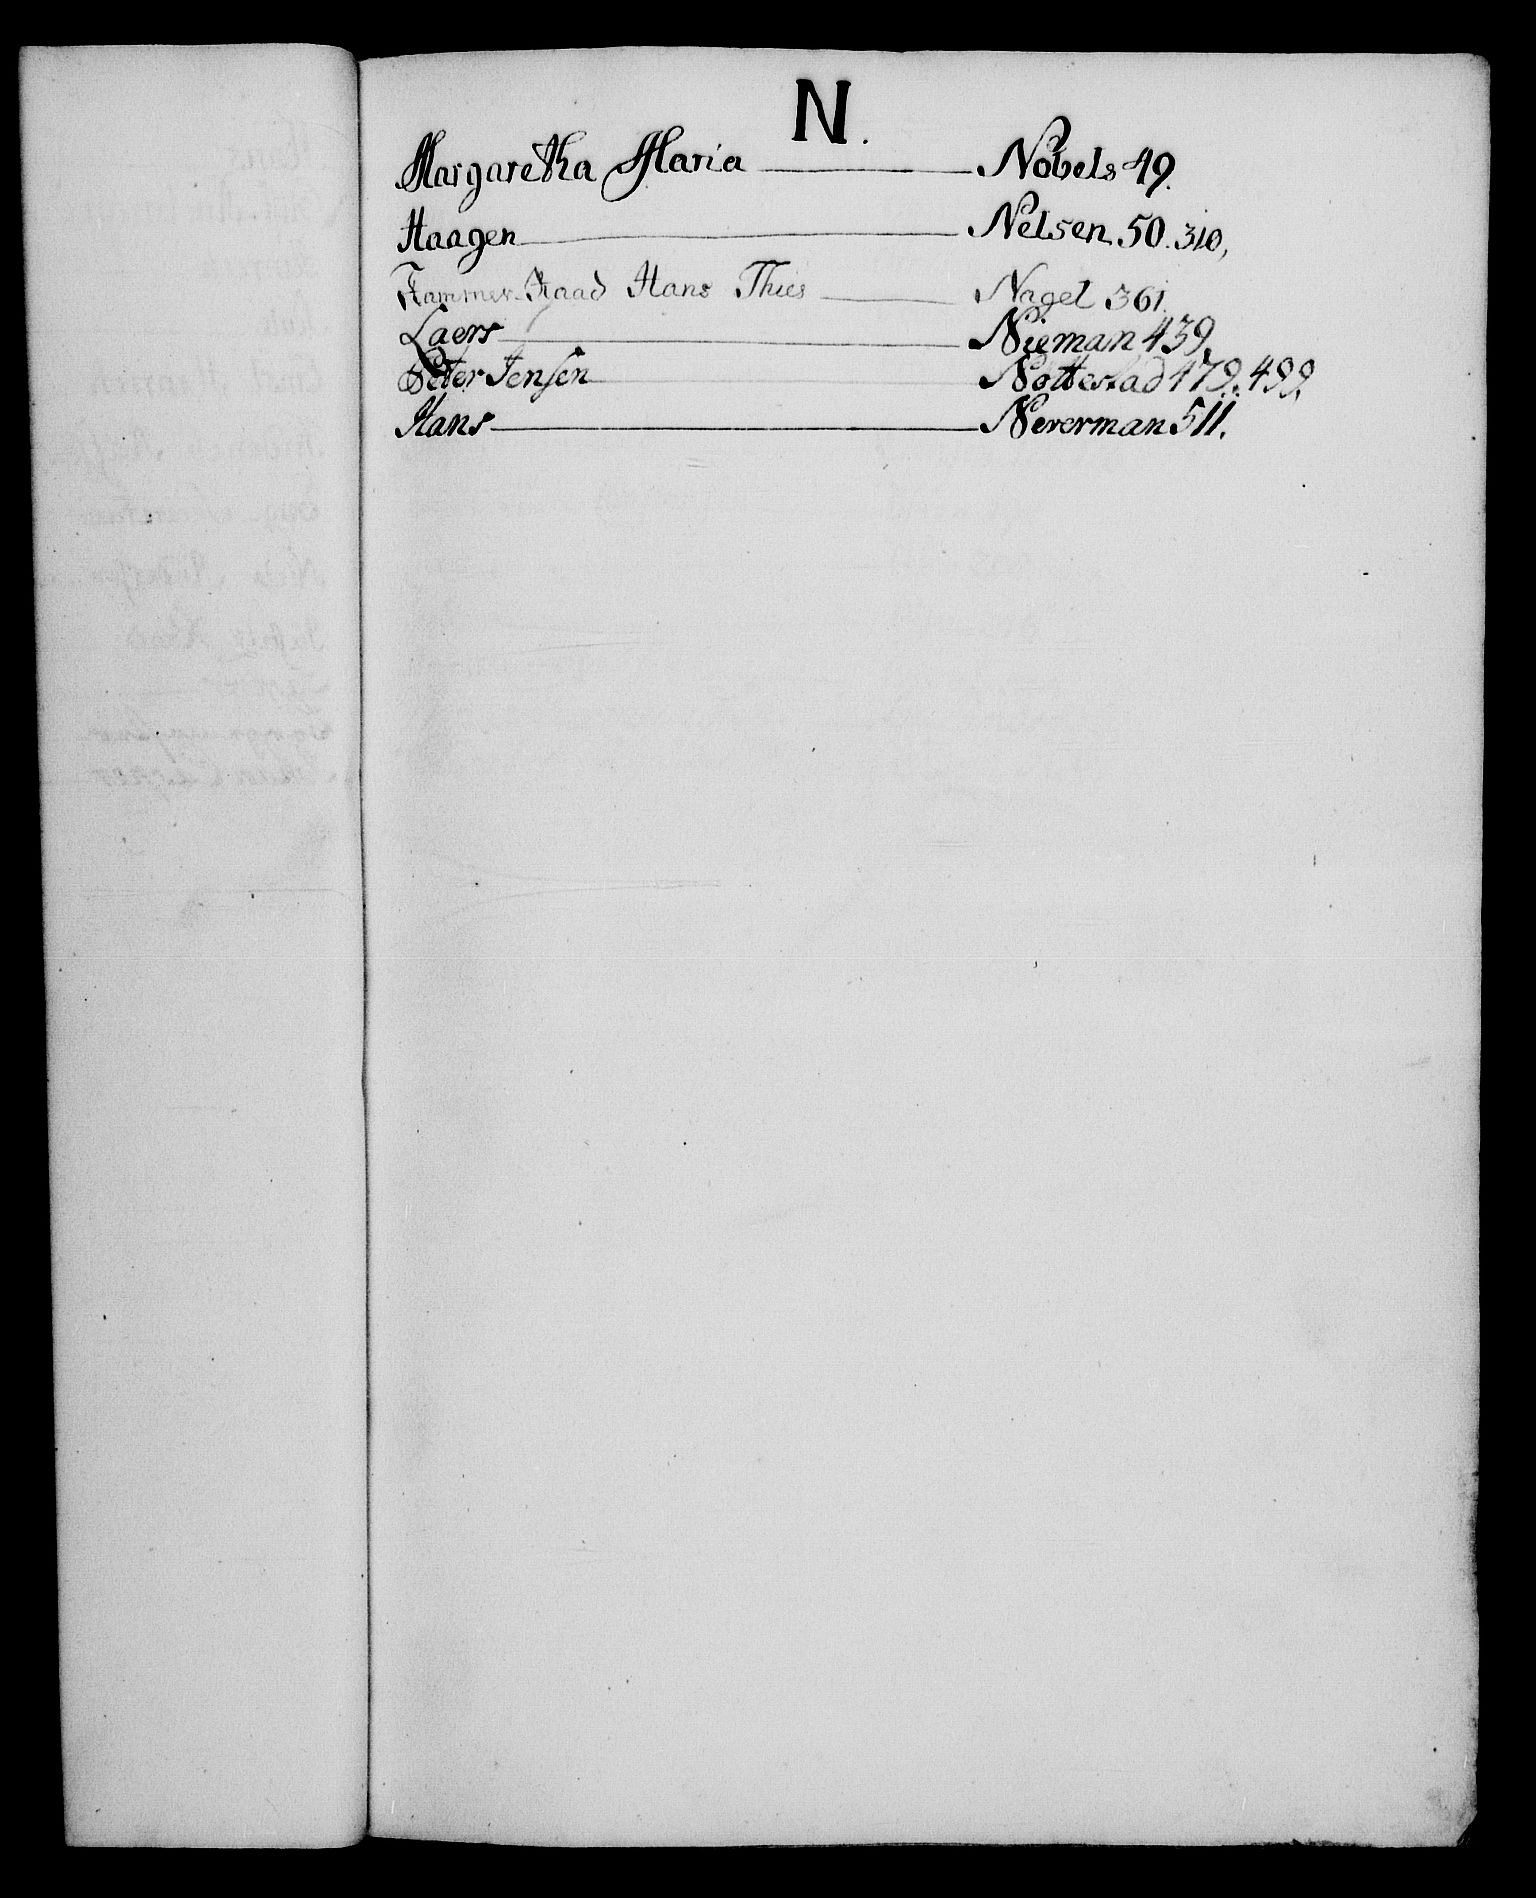 N.
Margaretha Maria — Nobels 49.
Haagen — Nelsen 50. 310,
Kammer-Raad Hans Thies — Nagel 361.
Laers — Nieman 439,
Peter Jensen — Nottestad 479. 499.
Hans — Neverman 511.